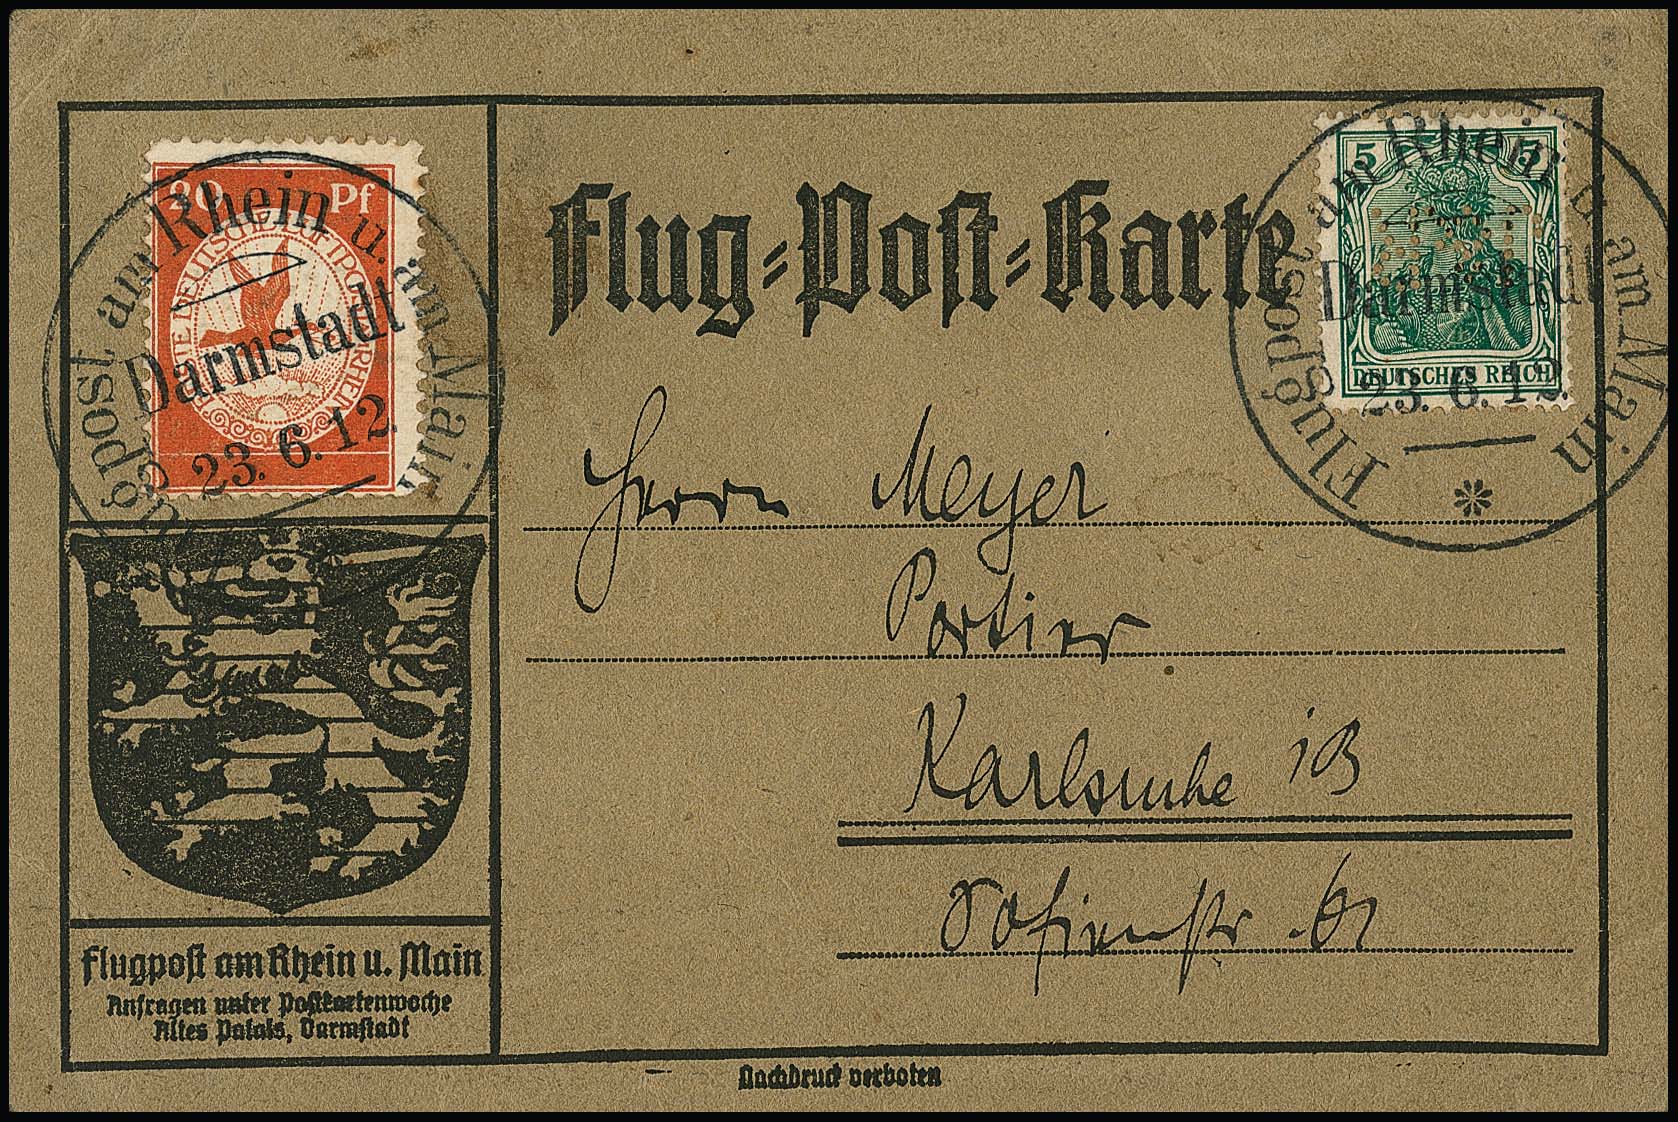 Flug-Post-Karte
20 Pf
ERSTE DEUTSCHE LUFTPOST AM RHEIN
Flugpost am Rhein u. am Main
Darmstadt
23.6.12.
5 5
DEUTSCHES REICH
Flugpost am Rhein u. am Main
Darmstadt
23.6.12.
Herrn Meyer
Portier
Karlsruhe i B
Sofienstr.
Flugpost am Rhein u. Main
Anfragen unter Postkartenwoche
Altes Palais, Darmstadt
Nachdruck verboten